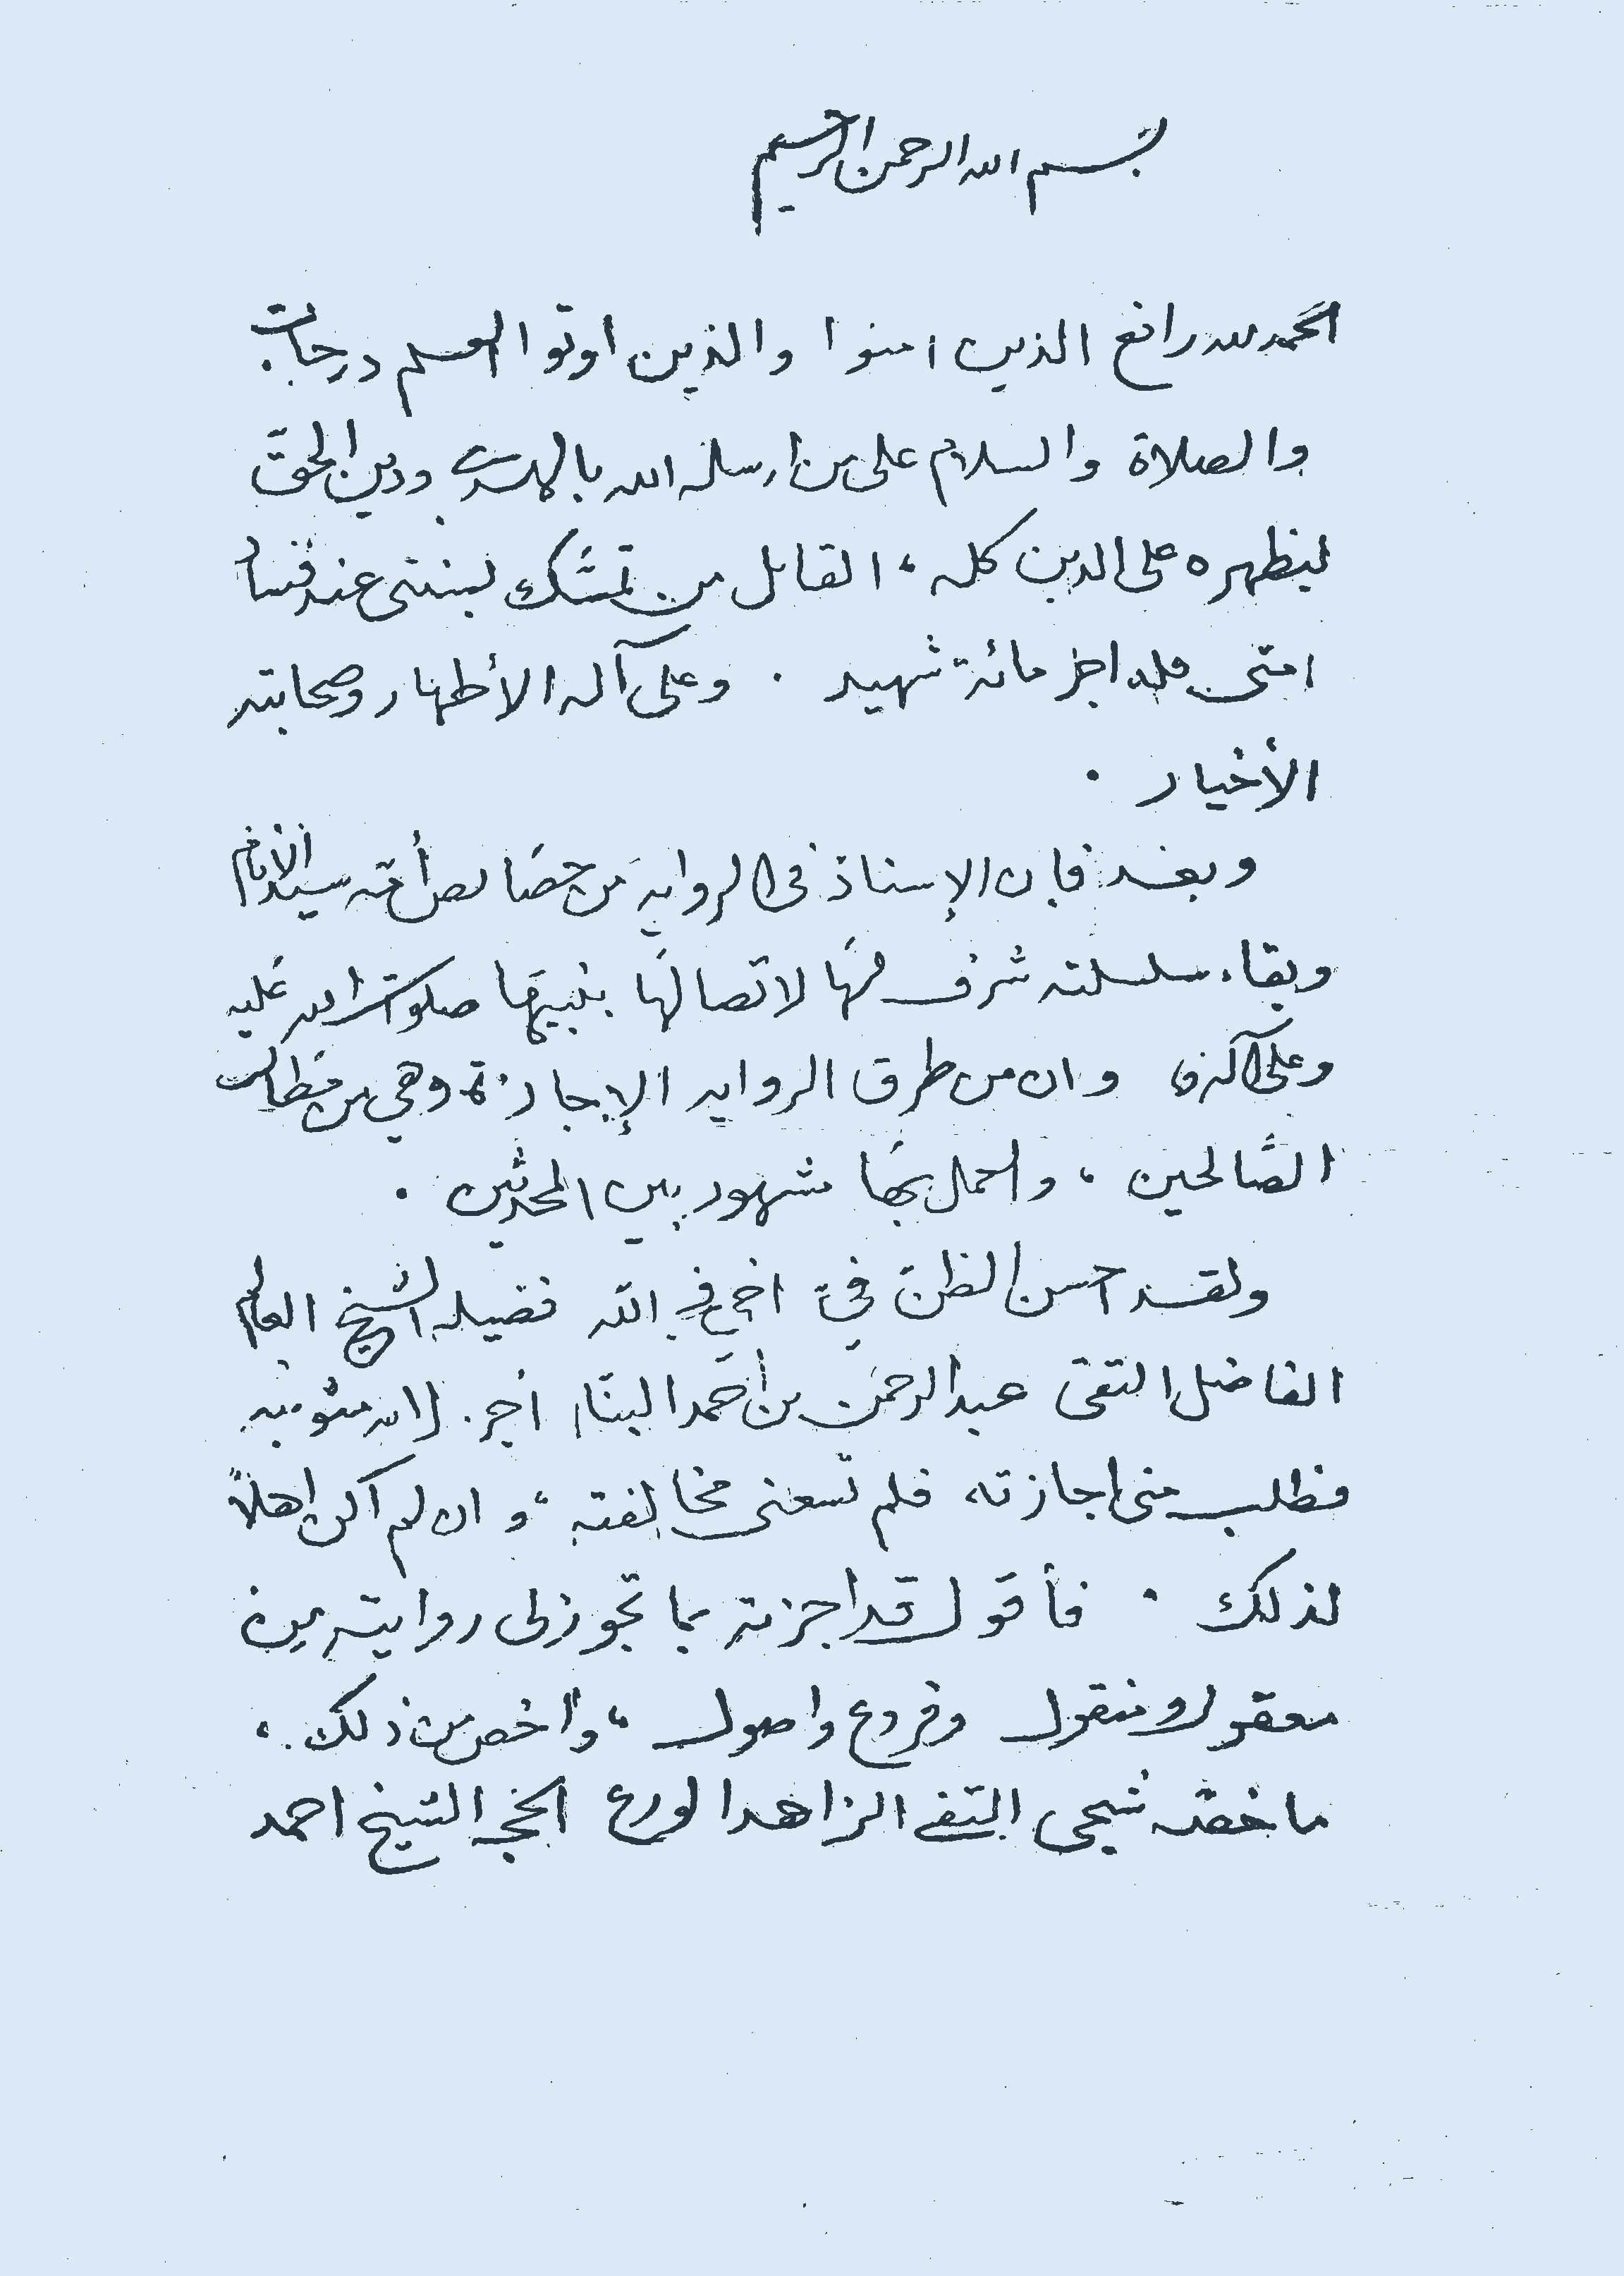 بسم الله الرحمن الرحيم
الحمد لله رافع الذين امنوا والذين اوتوا العلم درجات
والصلاة والسلام على من ارسله الله بالهدى ودين الحق
ليظهره على الدين كله، القائل من تمسك بسنتى عند فساد
امتى فله اجر مائة شهيد . وعلى آله الأطهار وصحابته
الأخيار .
وبعد فإن الإسناد فى الرواية من خصائص أمة سيد الأنام
وبقاء سلسلته شرف لها لاتصالها بنبيها صلوات الله عليه
وعلى آله وان من طرق الرواية الإجازة وهي من
الصالحين، والعمل بها مشهور بين المحدثين .
ولقد احسن الظن فيّ اخى في الله فضيلة الشيخ العالم
الفاضل التقى عبد الرحمن بن أحمد البنا أجزل الله مثوبته
فطلب منى اجازته فلم تسعنى مخالفته، وان لم اكن اهلاً
لذلك . فأقول قد اجزته بما تجوز لى روايته من
معقول ومنقول وفروع واصول، وأخص من ذلك،
ما خصه شيخى التقي الزاهد الورع الشيخ احمد